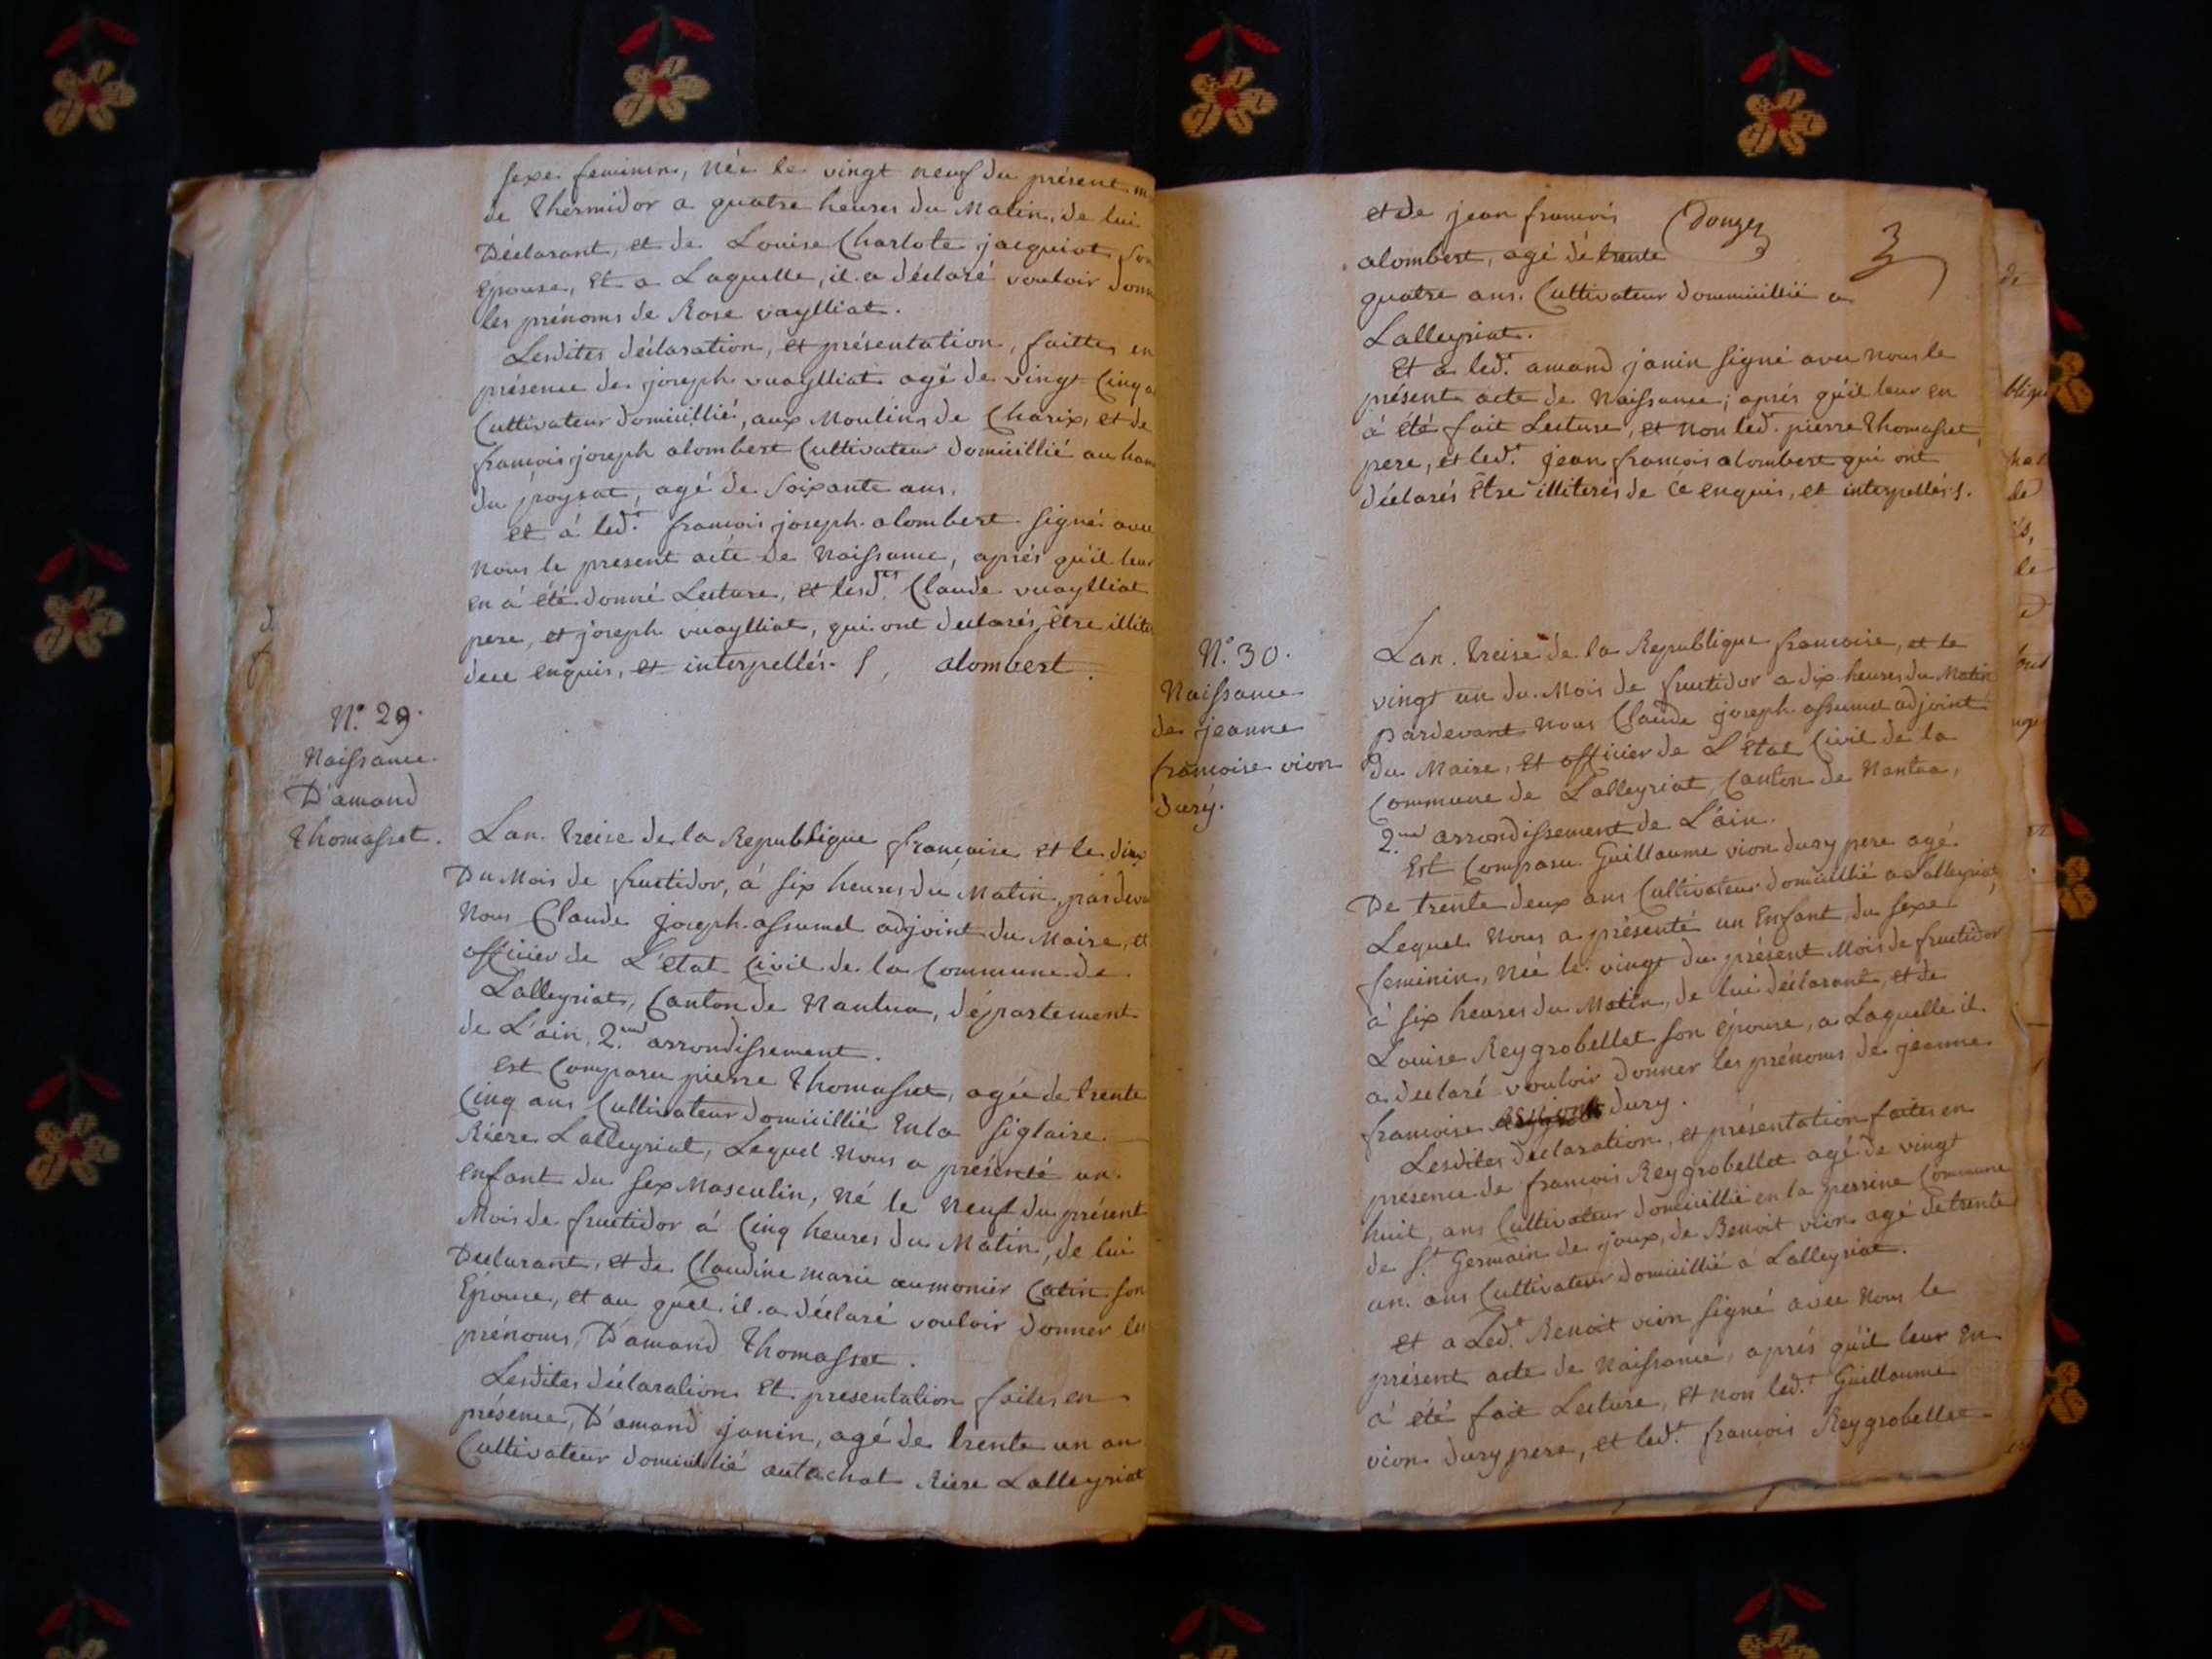 sexe feminin, née le vingt neuf du présent
de Thermidor a quatre heures du Matin, de lui
Déclarant, et de Louise Charlote jacquiot son
Epouse, Et a Laquelle, il a déclaré vouloir donn
les prénoms de Rose vaylliat.
Lesdites déclaration, et présentation, faittes en
présence de joseph vuaylliat agé de vingt Cinq a
Cultivateur domicillié, aux Moulins de Charix, et de
francois joseph alombert Cultivateur domicillié au ham
du poysat, agé de Soixante ans.
et á led.t francois joseph alombert signé avec
nous le present acte de Naissance, aprés qu'il leur
en á été donné Lecture, et lesd.tes Claude vuaylliat
pere, et joseph vuaylliat, qui ont declarés, Etre illite
dece enquis, et interpellés. alombert.
N.° 29.
Naissance
D'amand
Thomasset.
Lan Treise de la Republique francaise et le dix
Du Mois de fructidor, á six heures du Matin, pardeva
Nous Claude joseph assumel adjoint du Maire, et
officier de L'etat Civil de la Commune de
Lalleyriat, Canton de Nantua, département
de L'ain, 2.me arrondissement.
Est Comparu pierre Thomasset, agée de trente
Cinq ans Cultivateur domicillié Enla siglaire
Riere Lalleyriat, Lequel Nous a présenté un
enfant du sex Masculin, Né le Neuf du présent
Mois de fructidor á Cinq heures du Matin, de lui
Declarant, et de Claudine marie aumonier Catin son
Epouse, et au quel il a déclaré vouloir donner les
prénoms, D'amand Thomasset.
Lesdites déclarations Et presentation faites en
présence, D'amand janin, agé de trente un an
Cultivateur domicillié autachat Riere Lalleyriat
et de jean francois
alombert, agé de trente
quatre ans. Cultivateur dommicillié a
Lalleyriat.
Et a led.t amand janin signé avec nous le
présent acte de Naissance; aprés qu'il leur en
á été fait Lecture, et non led.t pierre Thomasset
pere, et led.t jean francois alombert qui ont
déclarés être illiterés de ce enquis, et interpellés.
N.° 30.
Naissance
de jeanne
francoise vion
dury.
Lan Treise de la Republique francoise, et le
vingt un du Mois de fructidor a dix heures du Matin
pardevant Nous Claude joseph assumel adjoint
du Maire, et officier de L'état Civil de la
Commune de Lalleyriat, Canton de Nantua,
2.me arrondissement de L'ain.
Est Comparu Guillaume vion dury pere agé
De trente deux ans Cultivateur domicillié a Lalleyriat,
Lequel Nous a présenté un Enfant du sexe
feminin, Née le vingt du présent Mois de fructidor
á six heures du Matin, de lui déclarant, et de
Louise Reygrobellet son épouse, a Laquelle il
a declaré vouloir donner les prénoms de jeanne
francoise dury.
Lesdites declaration, et présentation faites en
présence de francois Reygrobellet agé de vingt
huit, ans Cultivateur domicillié en la perrine Commune
de S.t Germain de joux, de Benoit vion agé de trente
un ans Cultivateur domicillié á Lalleyriat.
Et a Led.t Benoit vion signé avec Nous le
présent acte de Naissance, aprés qu'il leur En
á été fait Lecture, et non led.t Guillaume
vion dury pere, et led.t francois Reygrobellet